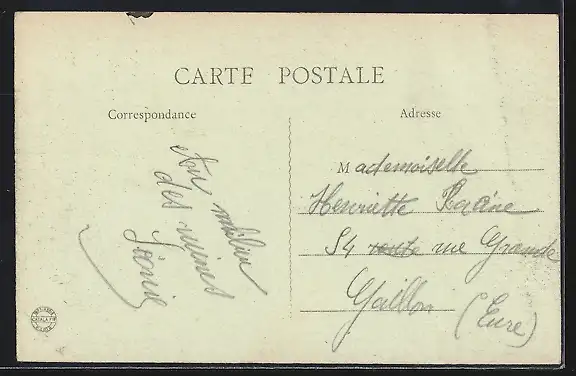 CARTE POSTALE
Correspondance
Adresse
Au milieu
des ruines
Léonie
Mademoiselle
Henriette Racine
54 route rue Grande
Gaillon (Eure)